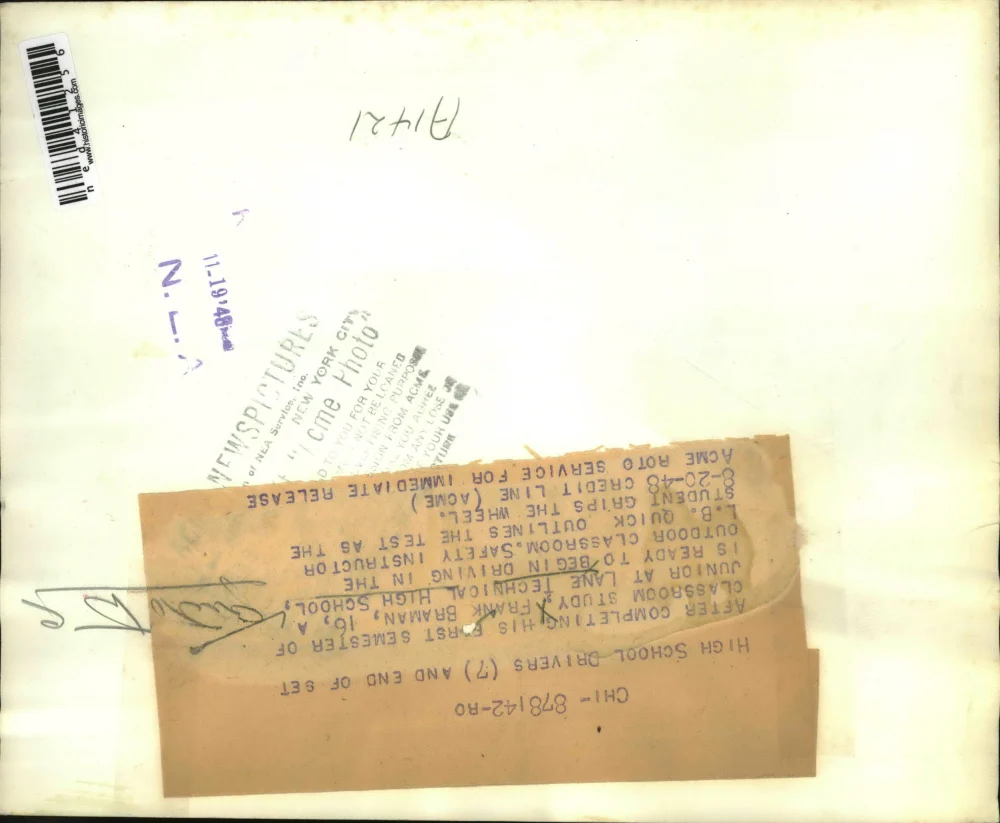 CHI- 878142-RO
HIGH SCHOOL DRIVERS (7) AND END OF SET
AFTER COMPLETING HIS FIRST SEMESTER OF
CLASSROOM STUDY, FRANK BRAMAN, 16, A
JUNIOR AT LANE TECHNICAL HIGH SCHOOL,
IS READY TO BEGIN DRIVING IN THE
OUTDOOR CLASSROOM. SAFETY INSTRUCTOR
L.B. QUICK OUTLINES THE TEST AS THE
STUDENT GRIPS THE WHEEL.
8-20-48 CREDIT LINE (ACME)
ACME ROTO SERVICE FOR IMMEDIATE RELEASE
NEWSPICTURES
of NEA Service, Inc.
NEW YORK CITY
"Acme Photo"
TO YOU FOR YOUR
NOT BE LOANED
FROM ACME
YOU AGREE
ANY LOSS
YOUR USE
11-19-48
A1421
www.historicimages.com
ned41256